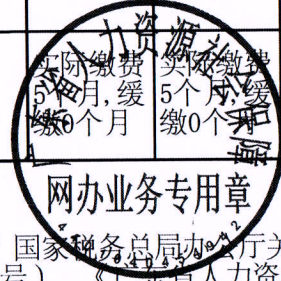 实际缴费
5个月,缓
缴0个月
实际缴费
5个月,缓
缴0个
广东省人力资源社会保障
网办业务专用章
国家税务总局办公厅关
号)、《广东省人力资